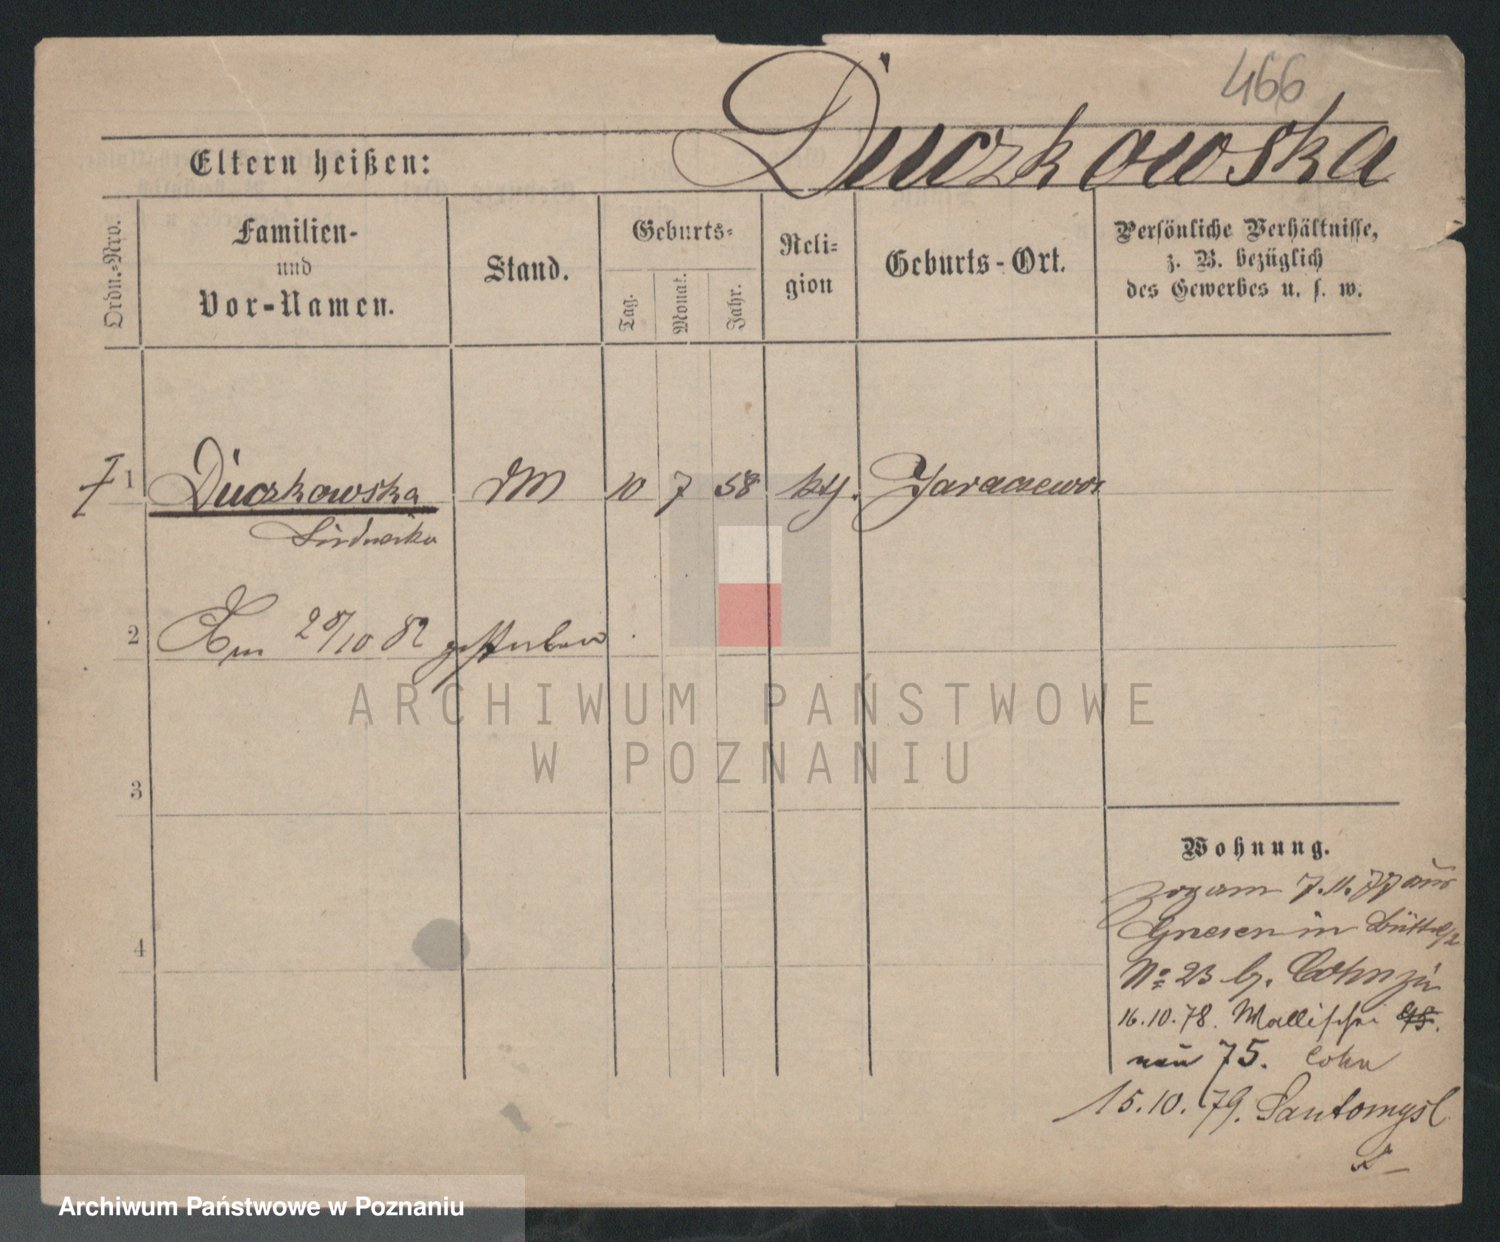 466
Duczkowska
Eltern heißen:
Ordn.-Nro.
Familien-
und
Vor-Namen.
Stand.
Geburts-
Tag.
Monat.
Jahr.
Reli-
gion
Geburts-Ort.
Persönliche Verhältnisse,
z. B. bezüglich
des Gewerbes u. s. w.
1 Duczkowska DM 10 7 58 kth. Jaraczewo
Ludwika
2 Am 28/10 82 gestorben
ARCHIWUM PAŃSTWOWE
W POZNANIU
3
Wohnung.
zog am 7.11.77 aus
Gnesen in
4
No 23 b. Cohn zu
16.10.78. Wallischei
neu 75. Cohn
15.10.79. Santomysl
Archiwum Państwowe w Poznaniu